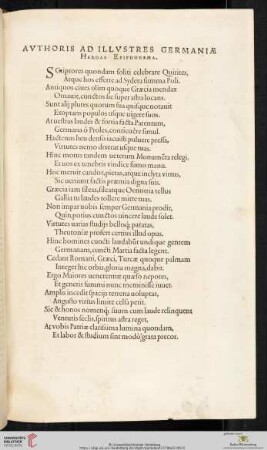 AVTHORIS AD ILLVSTRES GERMANIÆ
HEROAS EPIPHONEMA.
SCriptores quondam soliti celebrare Quirites,
Atque hos efferre ad sydera summa Poli.
Antiquos ciues olim quoque Græcia mendax
Ornauit, cunctos sic super astra locans.
Sunt alij plures quorum sua quisque notauit
Exoptans populos usque uigere suos.
At uestras laudes & fortia facta Parentum,
Germana ô Proles, conticuêre simul.
Hactenus heu denso iacuisti puluere pressa,
Virtutis nemo dixerat usque tuas.
Hinc motus tandem ueterum Monumenta relegi,
Et uos ex tenebris uindice sumo manu.
Hoc meruit candor, pietas, atque inclyta uirtus,
Sic ueniunt factis præmia digna suis.
Græcia iam sileas, sileatque Oenotria tellus
Gallia tu laudes tollere mitte tuas.
Non impar uobis semper Germania prodit,
Quin potius cunctos uincere laude solet.
Virtutes uarias studijs bellóq; paratas,
Theutoniæ profert certius illud opus.
Hinc homines cuncti laudabunt undique gentem
Germanam, cuncti Martia facta legent.
Cedant Romani, Græci, Turcæ quoque palmam
Integer hic orbis, gloria magna, dabit.
Ergo Maiores uenerentur quæso nepotes,
Et generis summi nunc meminisse iuuet.
Amplo incedit spacijs terrena uoluptas,
Angusto uirtus limite celsa petit.
Sic & honos nomenq; suum cum laude relinquent
Venturis seclis, spiritus astra reget,
At vobis Patriæ clarissima lumina quondam,
Et labor & studium sint modò grata precor.